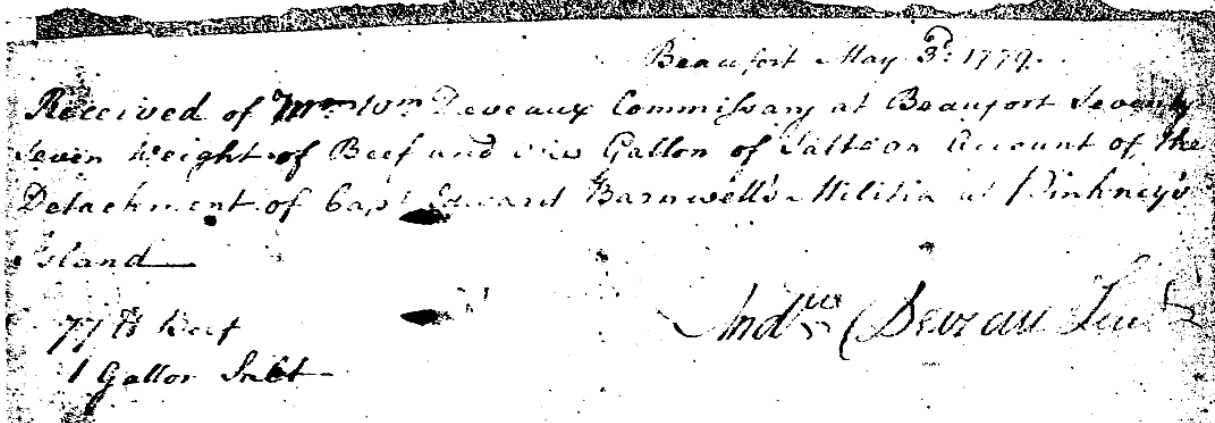 Beaufort May 3d: 1779.
Received of Mr Wm Deveaux Commissary at Beaufort Seventy
Seven Weight of Beef and one Gallon of Salt on Account of the
Detachment of Capt Edward Barnwell's Militia at Pinkney's
Island
77 lb Beef
1 Gallon Salt
Andw Deveau Lieut